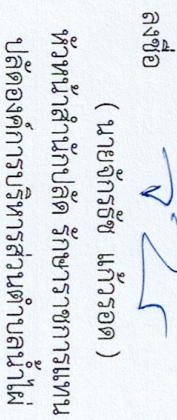 ลงชื่อ
( นายจักรรัช แก้วรอด )
หัวหน้าสำนักปลัด รักษาราชการแทน
ปลัดองค์การบริหารส่วนตำบลน้ำไผ่